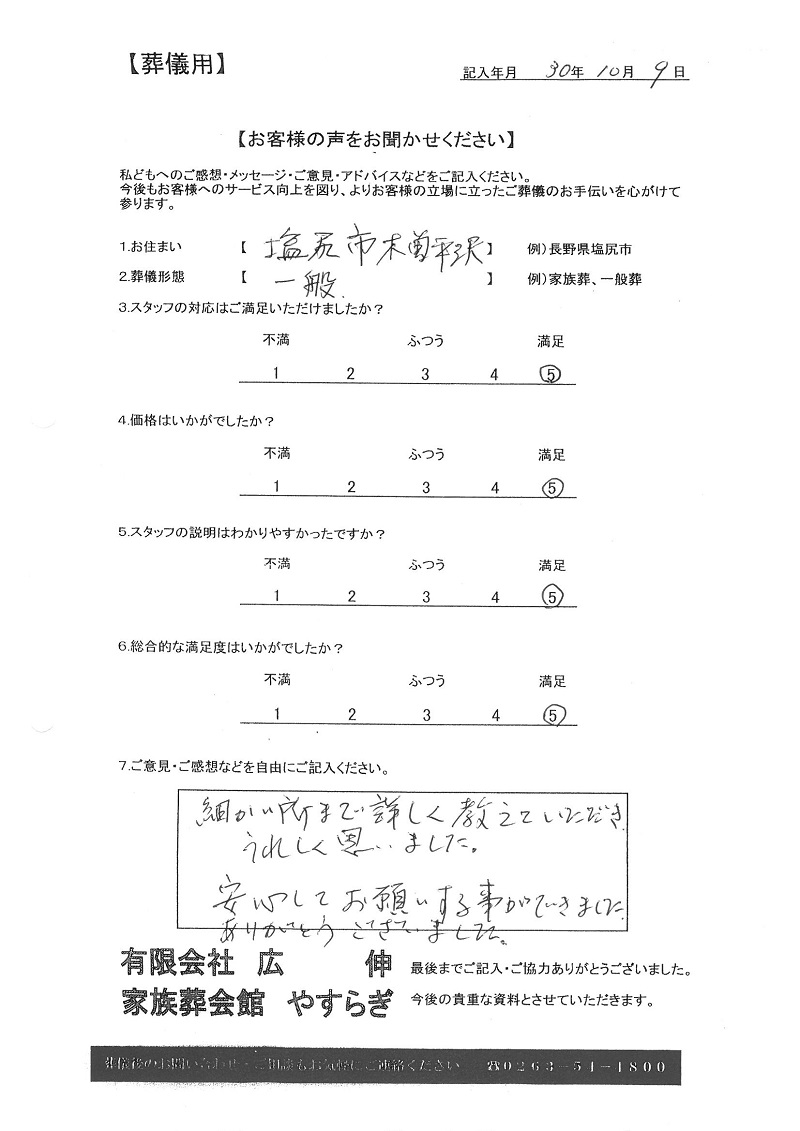 【葬儀用】
記入年月 30年 10月 9日
【お客様の声をお聞かせください】
私どもへのご感想・メッセージ・ご意見・アドバイスなどをご記入ください。
今後もお客様へのサービス向上を図り、よりお客様の立場に立ったご葬儀のお手伝いを心がけて
参ります。
1.お住まい 【 塩尻市木曽平沢 】 例)長野県塩尻市
2.葬儀形態 【 一般 】 例)家族葬、一般葬
3.スタッフの対応はご満足いただけましたか?
不満 ふつう 満足
1 2 3 4 ⑤
4.価格はいかがでしたか?
不満 ふつう 満足
1 2 3 4 ⑤
5.スタッフの説明はわかりやすかったですか?
不満 ふつう 満足
1 2 3 4 ⑤
6.総合的な満足度はいかがでしたか?
不満 ふつう 満足
1 2 3 4 ⑤
7.ご意見・ご感想などを自由にご記入ください。
細かい所まで詳しく教えていただき
うれしく思いました。
安心してお願いする事ができました
ありがとうございました。
有限会社 広 伸 最後までご記入・ご協力ありがとうございました。
家族葬会館 やすらぎ 今後の貴重な資料とさせていただきます。
葬儀後のお問い合わせ・ご相談もお気軽にご連絡ください ☎0263-51-1800